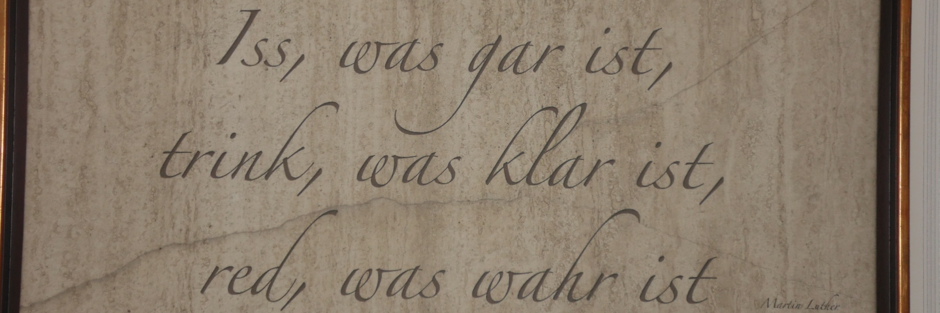 Iss, was gar ist,
trink, was klar ist,
red, was wahr ist
Martin Luther